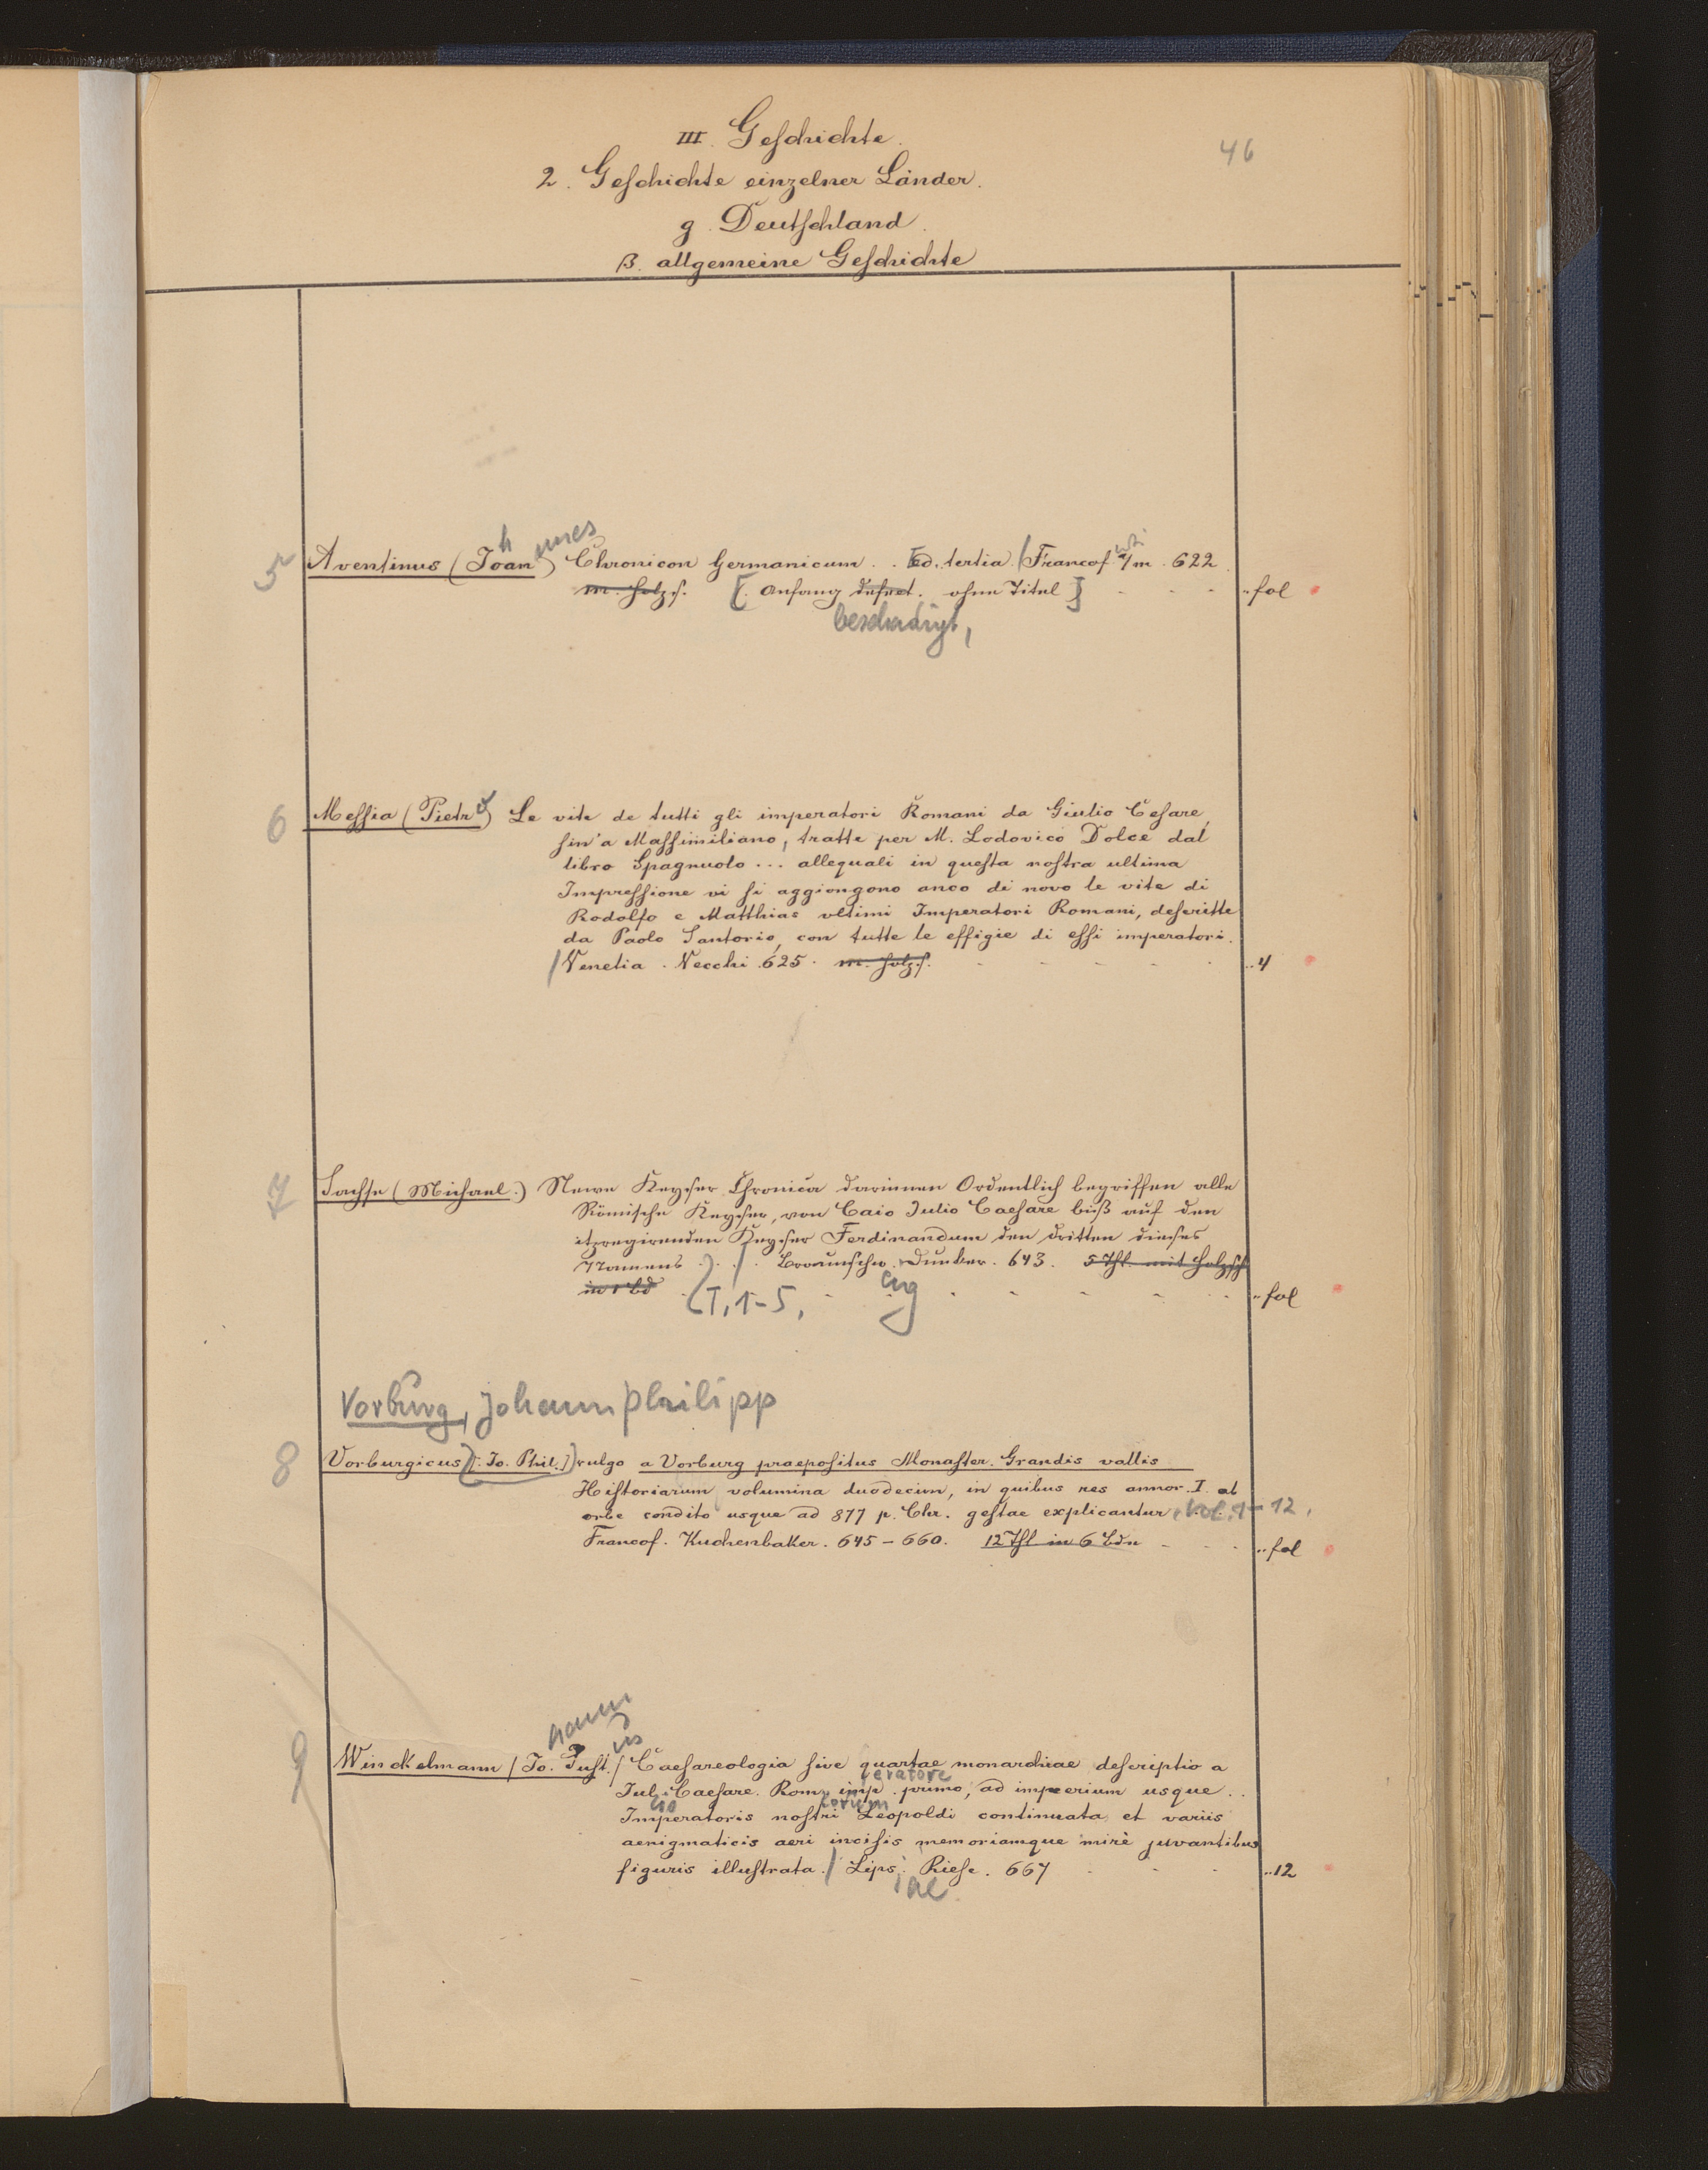 III. Geschichte.
46
2. Geschichte einzelner Länder.
g. Deutschland.
β. allgemeine Geschichte
5 Aventinus (Joan) h annes Chronicon Germanicum . . Ed. tertia. Francof. a/m. 622.
m. Holzs. [. Anfang defect. ohne Titel] - - - .. fol
beschädigt,
6 Messia (Pietro) Le vite de tutti gli imperatori Romani da Giulio Cesare,
sin'a Massimiliano, tratte per M. Lodovico Dolce dal
libro Spagnuolo ... allequali in questa nostra ultima
Impressione vi si aggiongono anco di novo le vite di
Rodolfo e Matthias vltimi Imperatori Romani, descritte
da Paolo Santorio, con tutte le effigie di essi imperatori.
Venetia. Necchi. 625. m. Holzs. - - - - - .. 4
7 Sachse (Michael.) Newe Keyser Chronica darinnen Ordentlich begriffen alle
Römische Keyser, von Caio Julio Caesare biß auf den
itzregirenden Keyser Ferdinandum den dritten dieses
Namens . . . Braunschw. Dunker. 643. 5 Thl. mit Holzsch
in 1 Bd (T, 1-5, eig .. fol
Vorburg, Johann Philipp
8 Vorburgicus [. Jo. Phil.] vulgo a Vorburg praepositus Monaster. Grandis vallis
Historiarum volumina duodecim, in quibus res annor. I. ab
orbe condito usque ad 877 p. Chr. gestae explicantur, Vol. 1-12.
Francof. Kuchenbaker. 645-660. 12 Thl in 6 Bdn - - - .. fol
hann us
9 Winckelmann (Jo. Just.) Caesareologia sive quartae monarchiae descriptio a
eratore
Jul. Caesare. Rom. imp. primo, ad imperium usque . .
io orum
Imperatoris nostri Leopoldi continuata et variis
aenigmaticis aeri incisis memoriamque mirè juvantibus
figuris illustrata. Lips. Riese. 667 - - - .. 12
iae